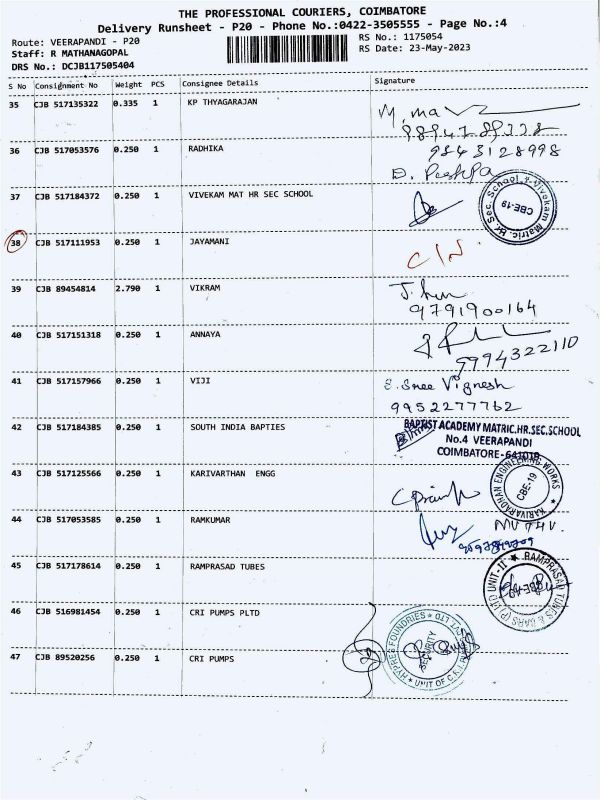 THE PROFESSIONAL COURIERS, COIMBATORE
Delivery Runsheet - P20 - Phone No.:0422-3505555 - Page No.:4
Route: VEERAPANDI - P20
RS No.: 1175054
Staff: R MATHANAGOPAL
RS Date: 23-May-2023
DRS No.: DCJB117505404
S No Consignment No Weight PCS Consignee Details Signature
35 CJB 517135322 0.335 1 KP THYAGARAJAN
36 CJB 517053576 0.250 1 RADHIKA 9843128998
D. Pushpa
37 CJB 517184372 0.250 1 VIVEKAM MAT HR SEC SCHOOL
Hr. Sec. School, Vivekam Matric.
CBE-19
38 CJB 517111953 0.250 1 JAYAMANI
C/N
39 CJB 89454814 2.790 1 VIKRAM
9791900164
40 CJB 517151318 0.250 1 ANNAYA
9994322110
41 CJB 517157966 0.250 1 VIJI E. Sree Vignesh
9952277762
42 CJB 517184385 0.250 1 SOUTH INDIA BAPTIES BAPTIST ACADEMY MATRIC.HR.SEC.SCHOOL
No.4 VEERAPANDI
COIMBATORE-641019
43 CJB 517125566 0.250 1 KARIVARTHAN ENGG
KARIVARADHAN ENGINEERING WORKS
CBE-19
44 CJB 517053585 0.250 1 RAMKUMAR
45 CJB 517178614 0.250 1 RAMPRASAD TUBES
RAMPRASAD TUBES & BARS (P) LTD UNIT-II
46 CJB 516981454 0.250 1 CRI PUMPS PLTD
HYPRES FOUNDRIES PVT LTD
SECURITY
UNIT OF C.R.I.
47 CJB 89520256 0.250 1 CRI PUMPS
2